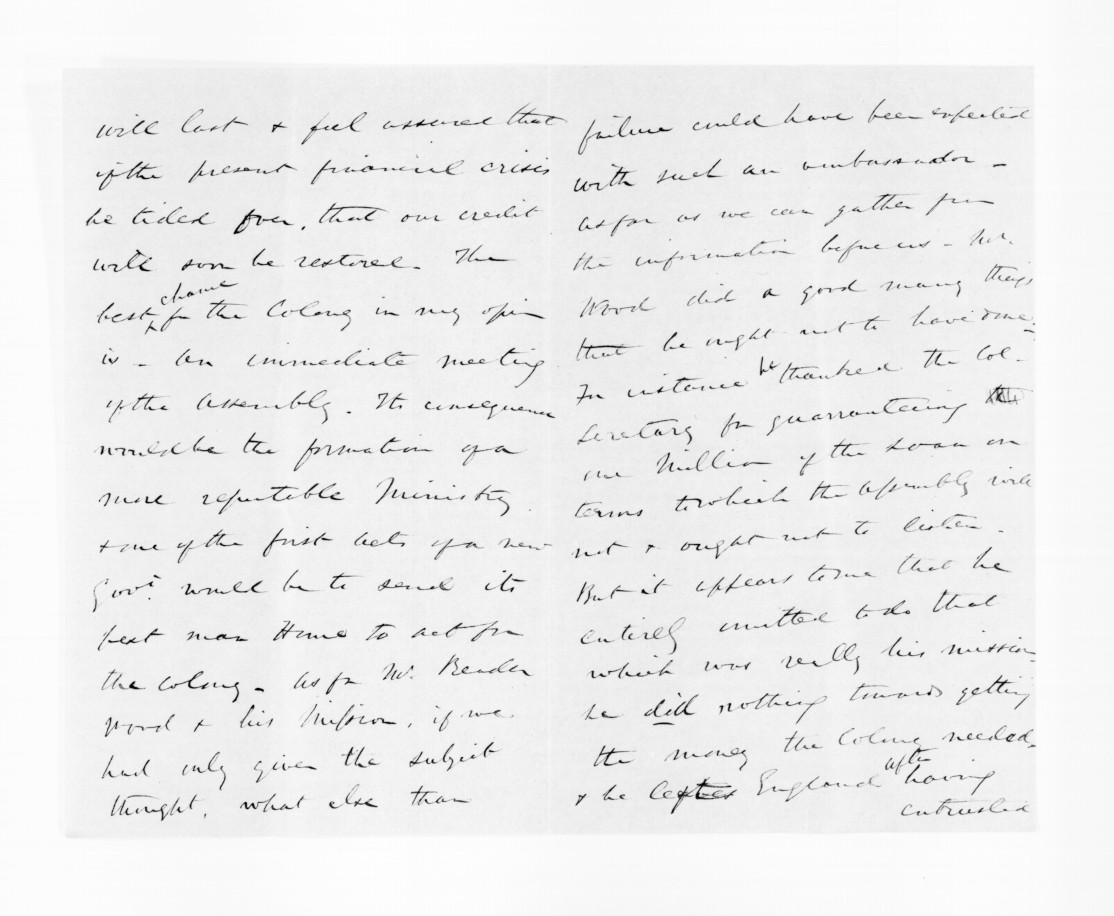 will last & feel assured that
if the present financial crisis
be tided over, that our credit
will soon be restored. The
best chance for the Colony in my opin
is - an immediate meeting
of the Assembly. Its consequence
would be the formation of a
more reputable Ministry
& one of the first acts of a new
Govt. would be to send its
best man Home to act for
the colony - as for Mr. Reader
Wood & his Mission, if we
had only given the subject
thought, what else than
failure could have been expected
with such an ambassador -
as far as we can gather from
the information before us - Mr.
Wood did a good many things
that he ought not to have done.
For instance he thanked the Col.
Secretary for guarranteeing
one Million of the Loan on
terms to which the Assembly will
not & ought not to listen.
But it appears to me that he
entirely omitted to do that
which was really his mission
he did nothing towards getting
the money the Colony needed.
& he left England after having
entrusted